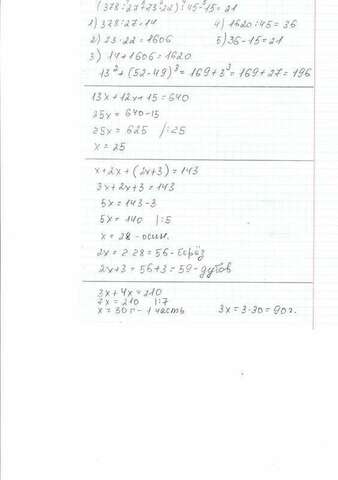 (378:27+73·22):45-15=21
1) 378:27=14 4) 1620:45=36
2) 73·22=1606 5) 36-15=21
3) 14+1606=1620
13²+(52-49)³=169+3³=169+27=196
13x+12x+15=640
25x=640-15
25x=625 /:25
x=25
x+2x+(2x+3)=143
3x+2x+3=143
5x=143-3
5x=140 |:5
x=28-осин.
2x=2·28=56-берёз
2x+3=56+3=59-дубов
3x+4x=210
7x=210 |:7
x=30г-1 часть 3x=3·30=90г.